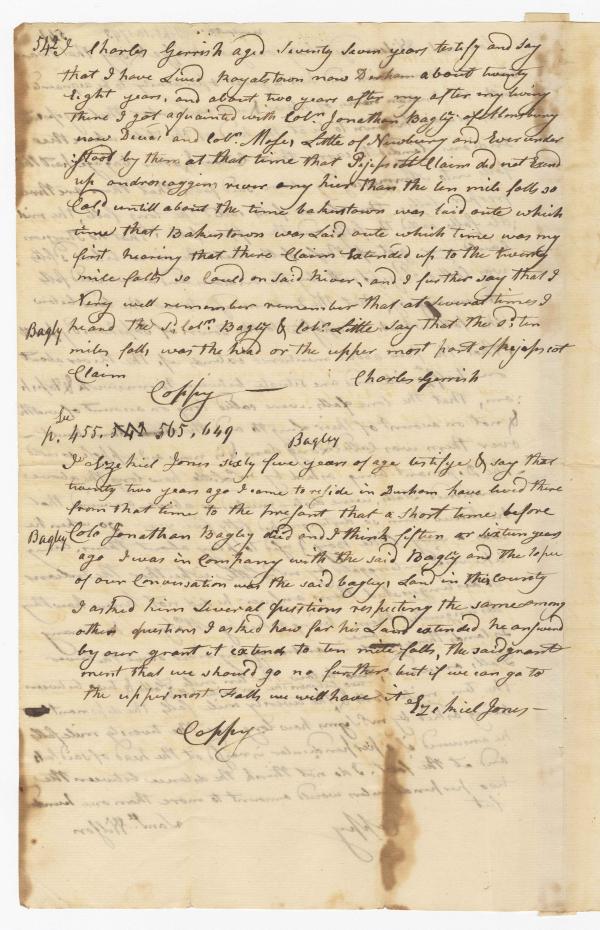 542 I Charles Gerrish aged Seventy Seven years testify and say
that I have Lived Royalstown now Durham about twenty
Eight years, and about two years after my after my living
there I got aquainted with Colo. Jonathan Bagly of Almsbury
now Deceas and Colo. Moses Little of Newbury and Ever under
stood by them at that time that Pejepscot Claim did not Exend
up androscoggins river any hier than the ten mile falls so
Cald, untill about the time bakerstown was laid oute which
time that Bakerstown was Laid oute which time was my
first hearing that there Claim Extended up to the twenty
mile falls so Cauld on said River, and I further say that I
Very well remember remember that at several times I
Bagly heard the sd. Colo. Bagly & Colo. Little say that the sd. ten
miles falls was the head or the upper most part of Pejepscot
Claim
Coppy Charles Gerrish
See
p. 455, 541 565, 649 Bagly
I Ezekiel Jones sixty five years of age testifye & say that
twenty two years ago I came to reside in Durham have lived there
from that time to the present that a short time before
Bagly Colo Jonathan Bagley died and I think fifteen or sixteen years
ago I was in Company with the said Bagley and the
of our Conversation was the said bagleys Land in this county
I asked him several questions respecting the same among
other questions I asked how far his Land extended he answered
by our grant it extends to ten mile falls, the said grant
ment that we should go no further but if we can go to
the uppermost Falls we will have it Ezekiel Jones
Coppy